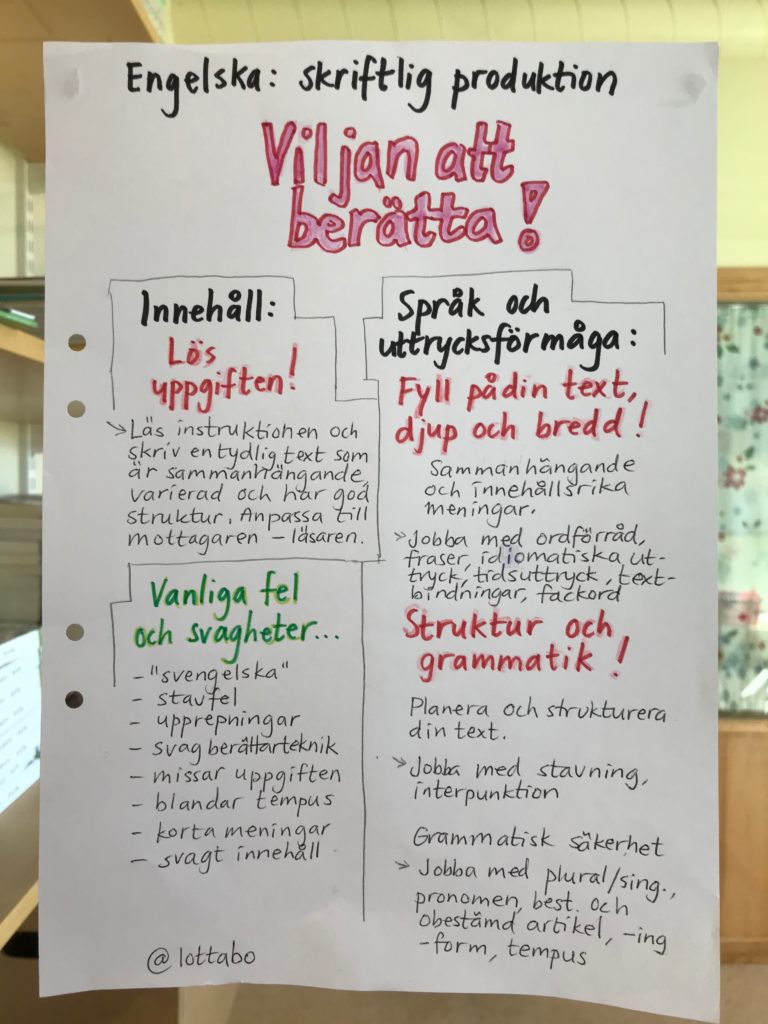 Engelska: skriftlig produktion
Viljan att
berätta!
Innehåll:
Lös
uppgiften!
Läs instruktionen och
skriv en tydlig text som
är sammanhängande,
varierad och har god
struktur. Anpassa till
mottagaren – läsaren.
Vanliga fel
och svagheter...
- "svengelska"
- stavfel
- upprepningar
- svag berättarteknik
- missar uppgiften
- blandar tempus
- korta meningar
- svagt innehåll
Språk och
uttrycksförmåga:
Fyll på din text,
djup och bredd!
Sammanhängande
och innehållsrika
meningar.
Jobba med ordförråd,
fraser, idiomatiska ut-
tryck, tidsuttryck, text-
bindningar, fackord
Struktur och
grammatik!
Planera och strukturera
din text.
Jobba med stavning,
interpunktion
Grammatisk säkerhet
Jobba med plural/sing.,
pronomen, best. och
obestämd artikel, -ing
-form, tempus
@lottabo